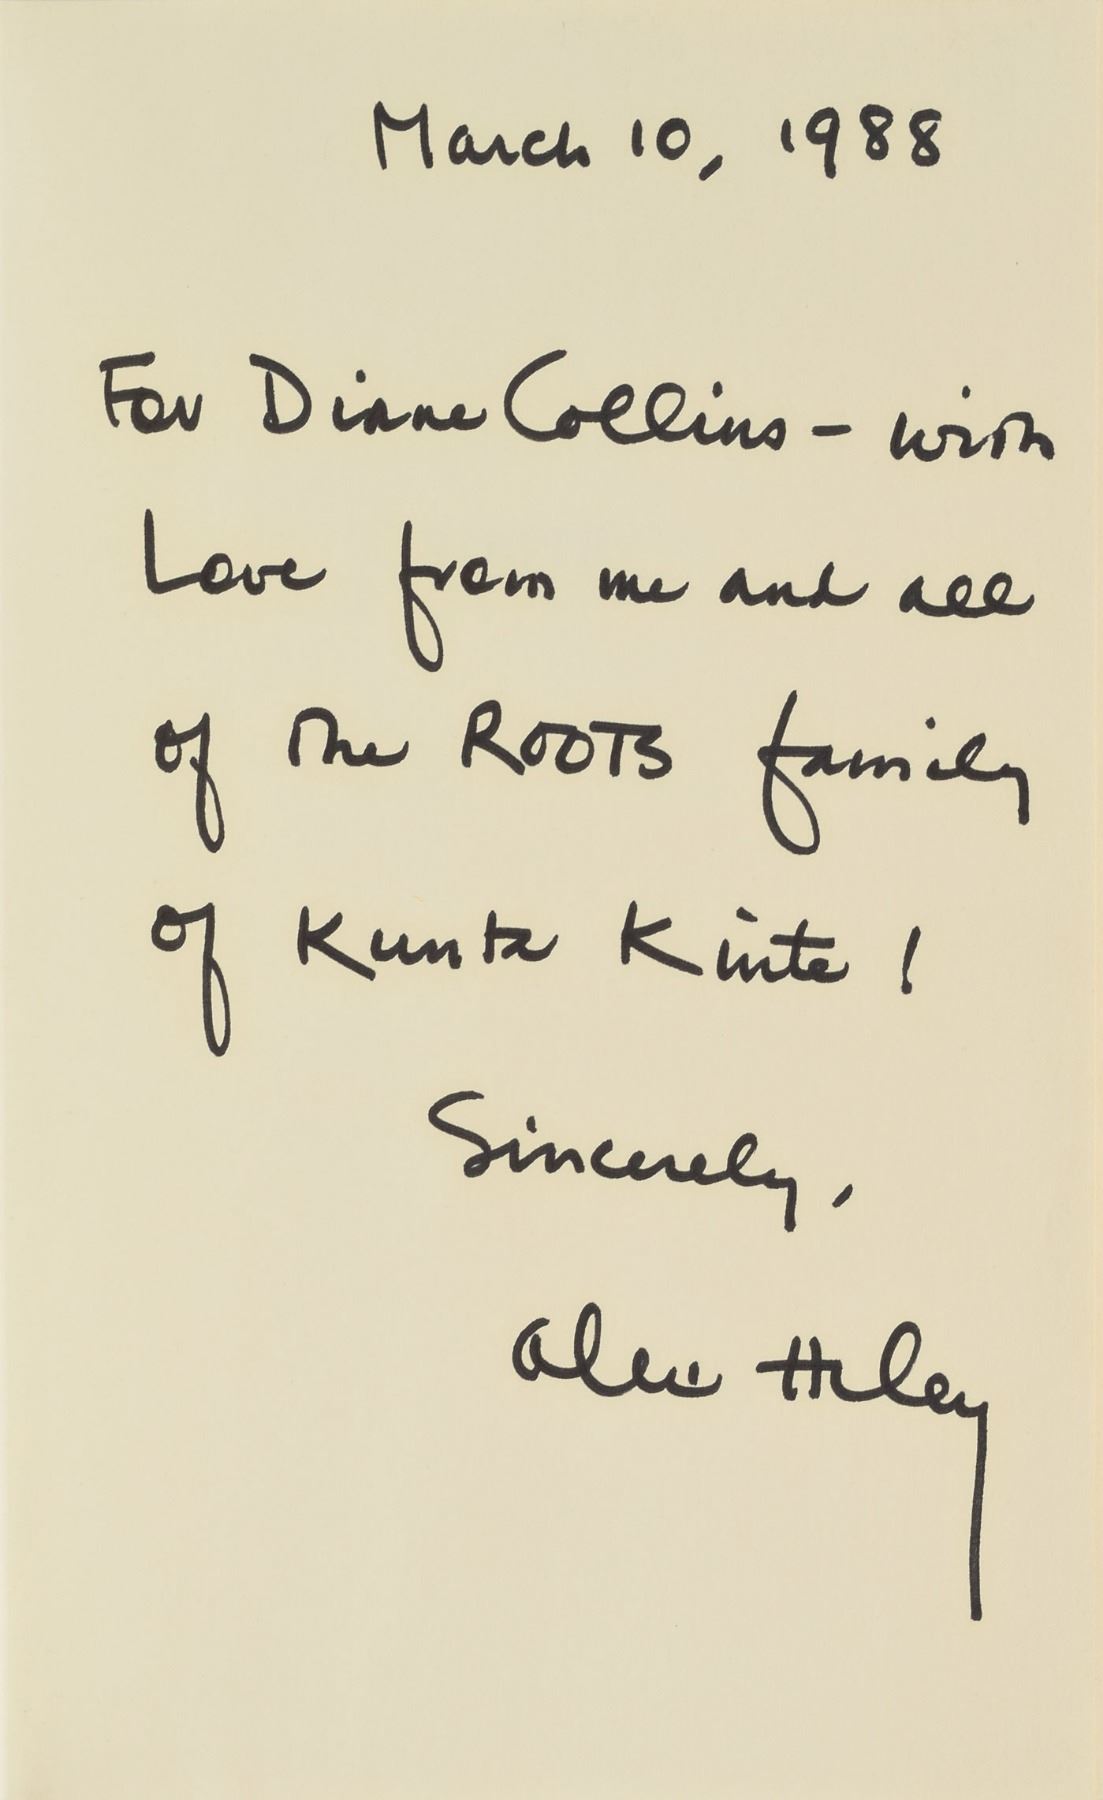 March 10, 1988
For Diane Collins - with
Love from me and all
of the ROOTS family
of Kunta Kinte!
Sincerely,
Alex Haley